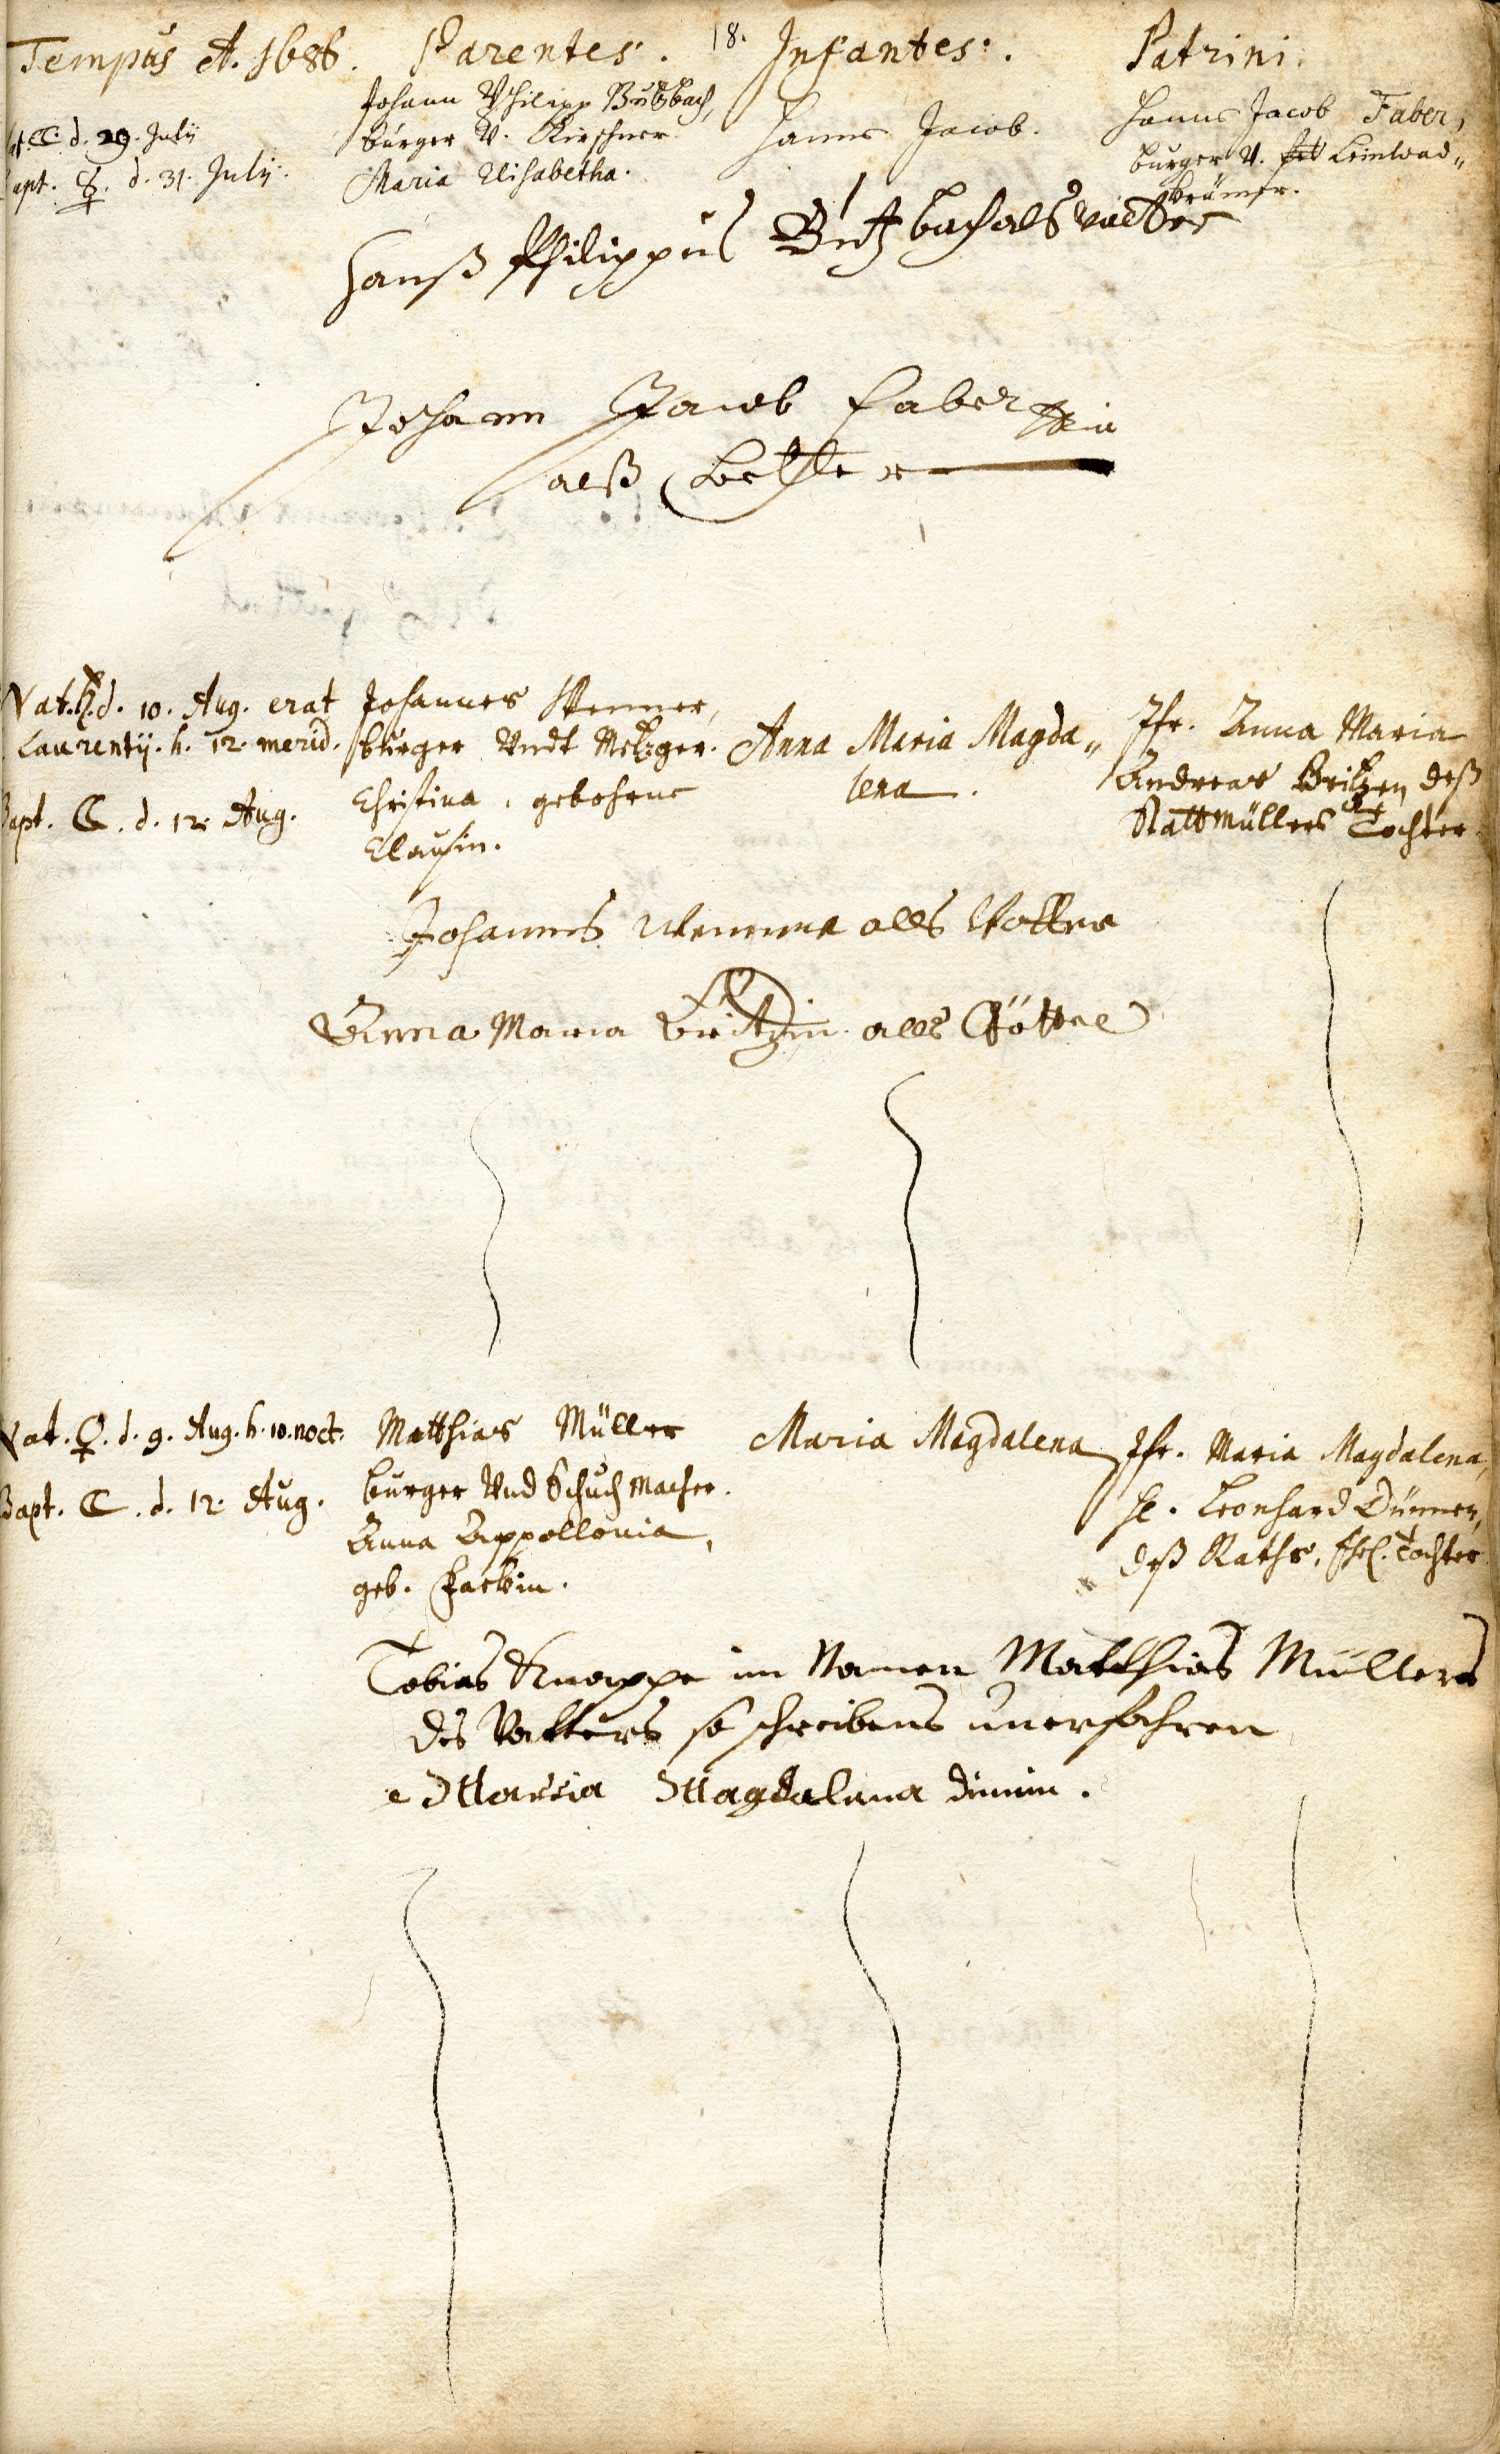 18.
Tempus A. 1686. Parentes. Infantes. Patrini.
Nat. ☾. d. 29. July
Bapt. ☿. d. 31. July.
Johann Philipp Butzbach,
burger V. Kirschner.
Maria Elisabetha.
Hanns Jacob.
Hanns Jacob Faber,
burger V. Leinwad„
krämer.
Hanß Philippus Butzbach als vatter
Johann Jacob Faber
alß
Nat. ♄. d. 10. Aug. erat
Laurentij. h. 12. merid.
Bapt. ☾. d. 12. Aug.
Johannes Wenner,
burger Vndt Metzger.
Christina, gebohrne
Clausin.
Anna Maria Magda„
lena.
Jfr. Anna Maria
Andreas Britzen, deß
Stattmüllers Tochter.
Johannes Wenner alls Vatter
Anna Maria Britzin alls Göttel
Nat. ♀. d. 9. Aug. h. 10. noct.
Bapt. ☾. d. 12. Aug.
Matthias Müller
burger Vnd Schuchmacher.
Anna Appollonia,
geb. Hackin.
Maria Magdalena
Jfr. Maria Magdalena,
H. Leonhard Dümmen,
deß Raths, Ehel. Tochter
Tobias Knappe im Namen Matthias Müllers
des Vatters so schreibens unerfahren
Marria Magdalena